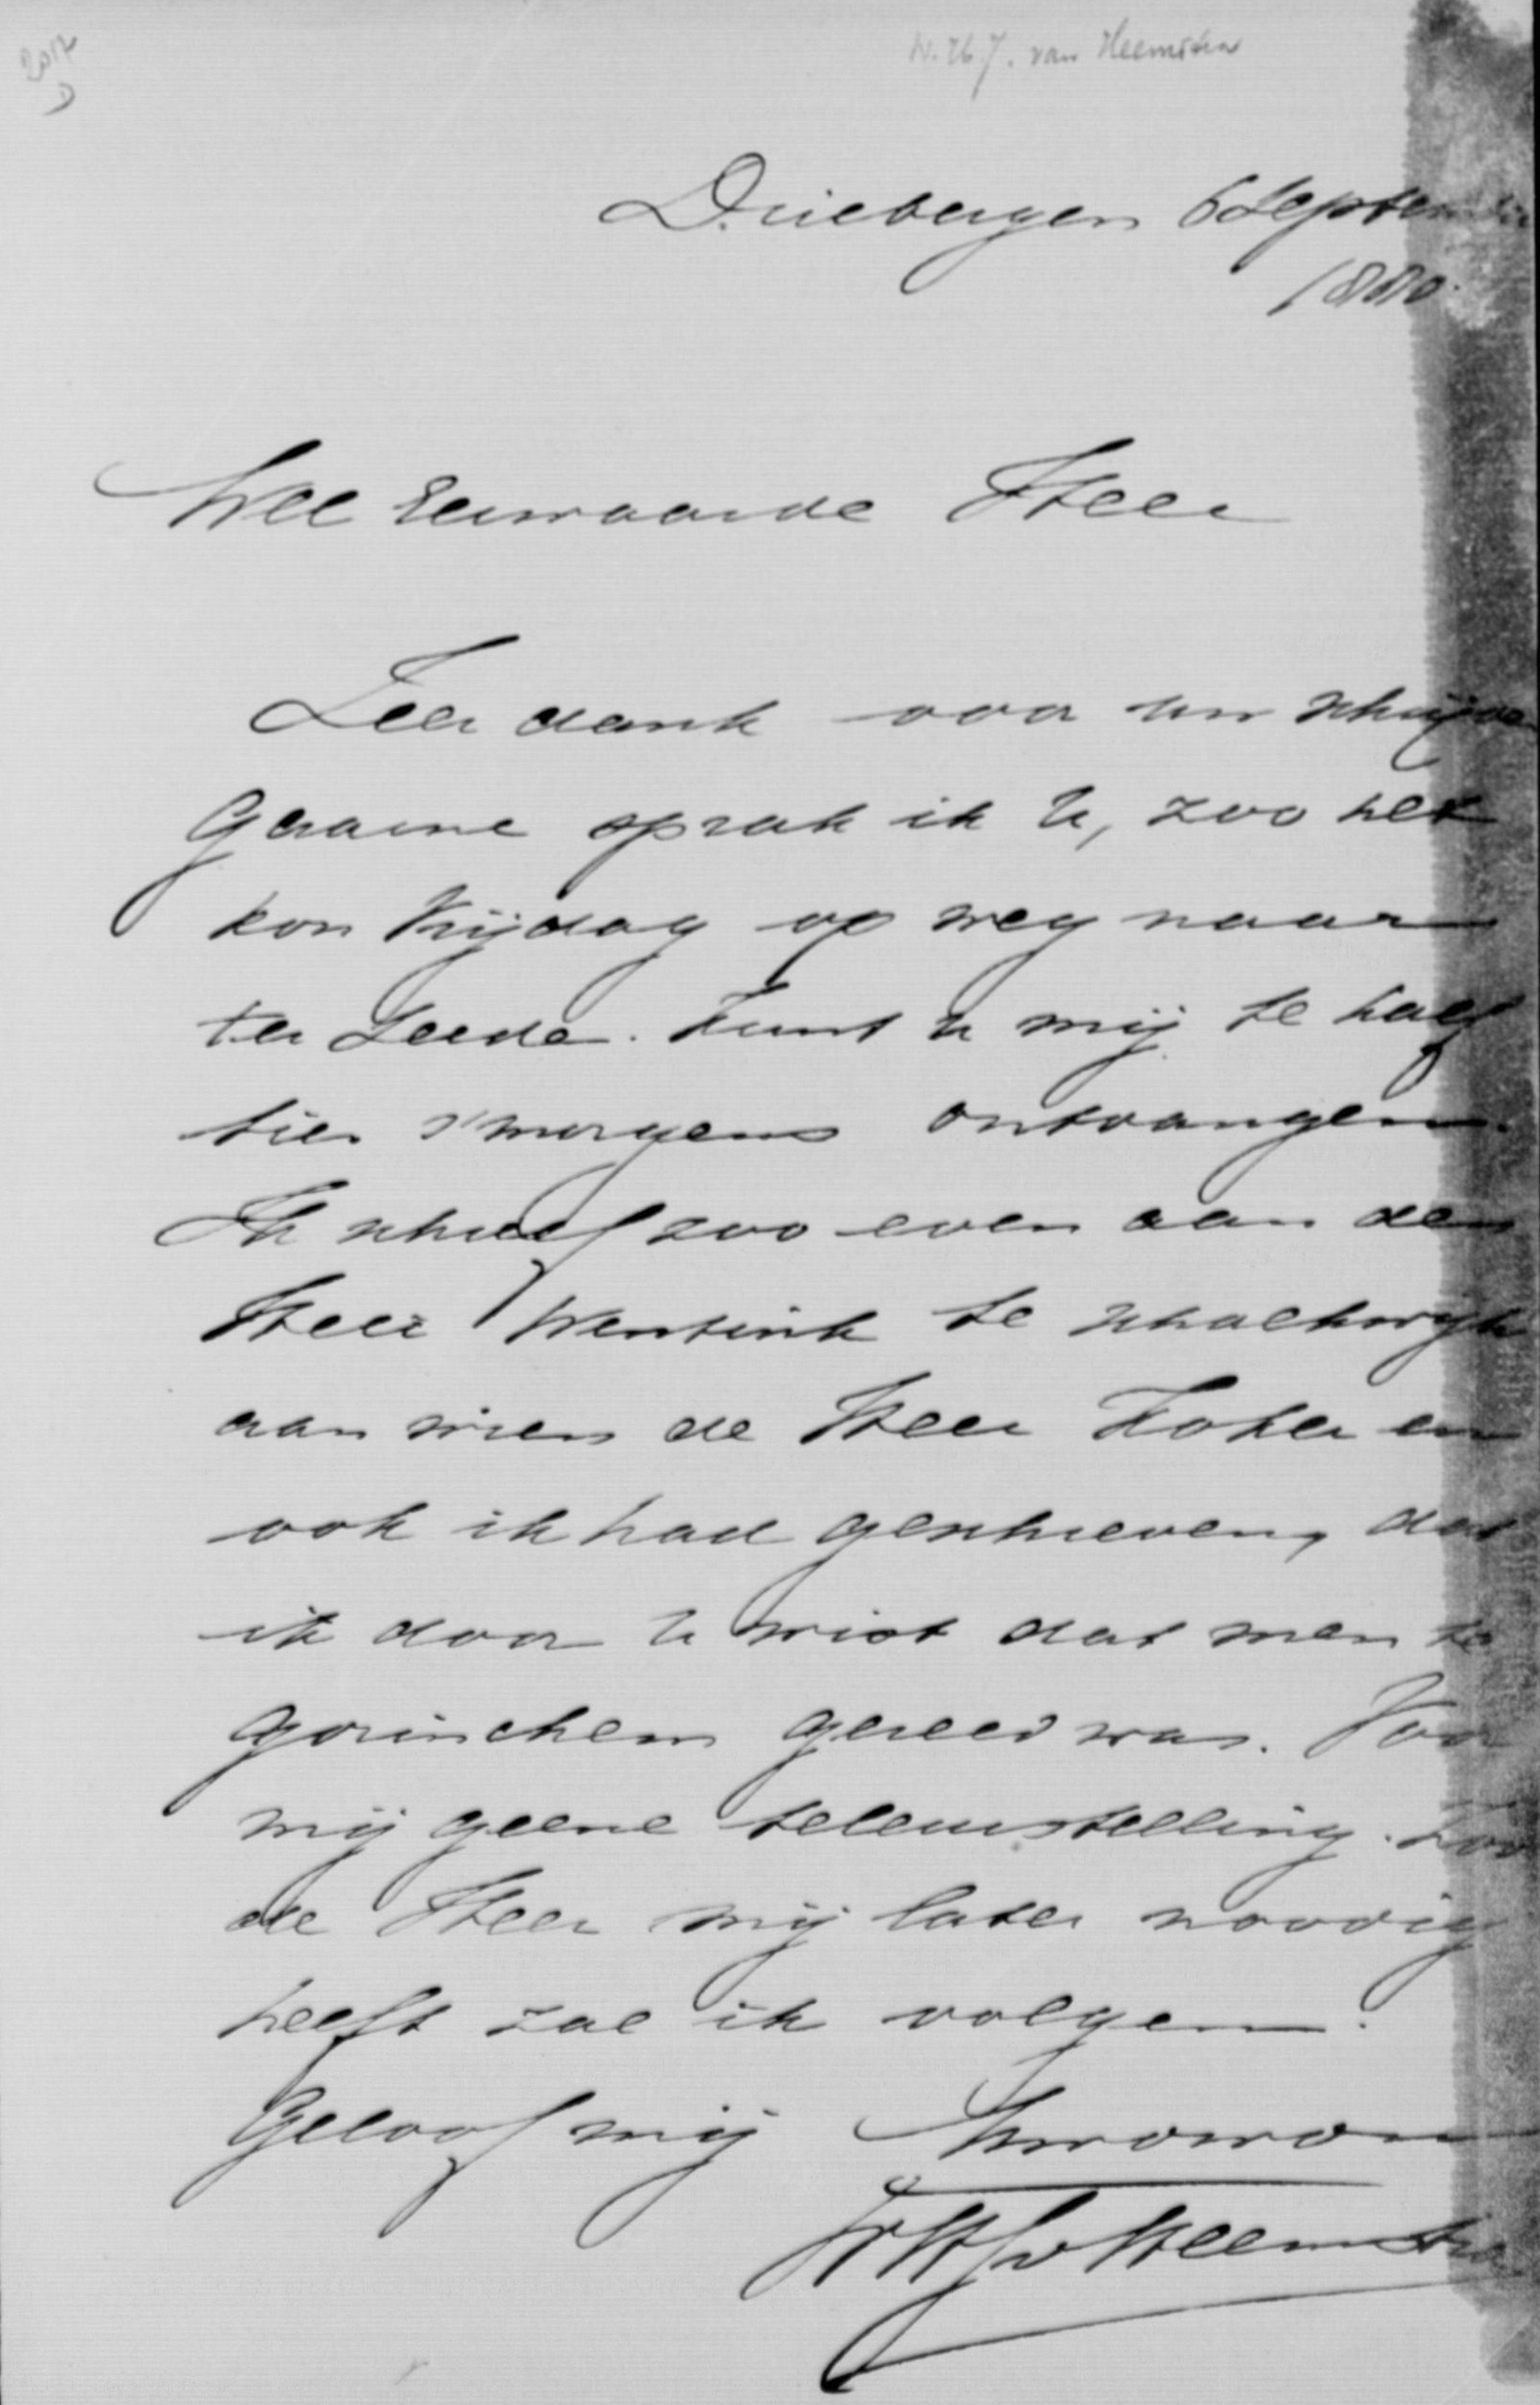 W. H. J. van Heemstra
Driebergen 6 September
1880.
Wel Eerwaarde Heer
Zeer dank voor uw schrijven
Gaarne sprak ik U, zoo het
kon Vrijdag op weg naar
ter Leede. Kunt U mij te half
tien s'morgens ontvangen.
Ik schreef zoo even aan den
Heer Wentink te Schalkwijk
aan wien de Heer Hoker en
ook ik had geschreven, dat
ik door U wist dat men te
Gorinchem gereed was. Voor
mij geene teleurstelling. Zoo
de Heer mij later noodig
heeft zal ik volgen.
Geloof mij
WHJv Heemstra